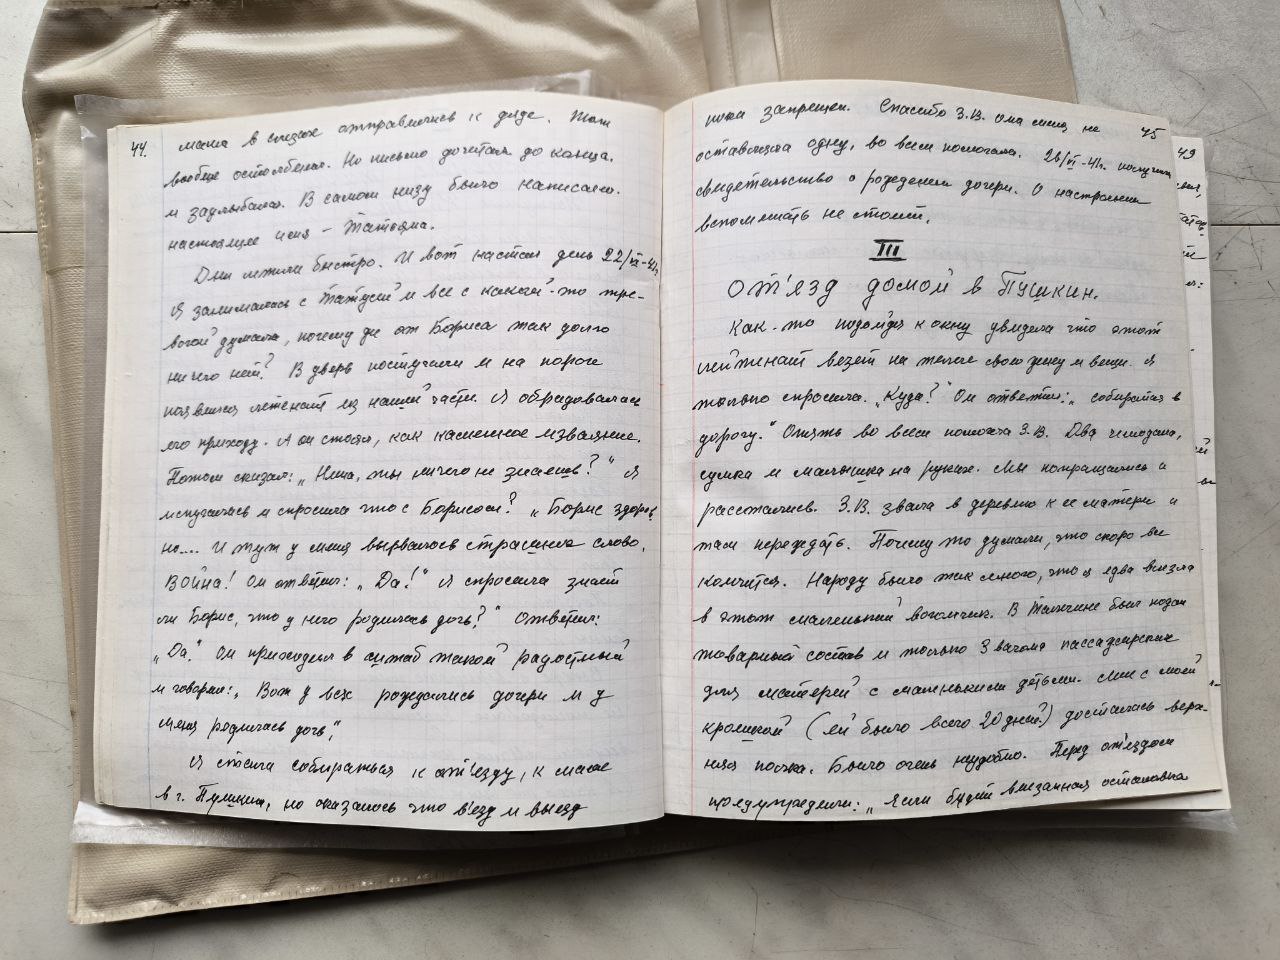 44.
мама в слезах отправилась к дяде. Тот
вообще остолбенел. Но письмо дочитал до конца.
и заулыбался. В самом низу было написано.
настоящее имя – Татьяна.
Дни летели быстро. И вот настал день 22/VI-41г.
Я занималась с Татусей и все с какой-то тре-
вогой думала, почему же от Бориса так долго
ничего нет? В дверь постучали и на пороге
появился лейтенант из нашей части. Я обрадовалась
его приходу. А он стоял, как каменное изваяние.
Потом сказал: „Нина, ты ничего не знаешь?" Я
испугалась и спросила что с Борисом? „Борис здоров,
но.... И тут у меня вырвалось страшное слово,
Война! Он ответил: „Да!" Я спросила знает
ли Борис, что у него родилась дочь?" Ответил:
„Да." Он приходил в штаб такой радостный
и говорил: „Вот у всех рождались дочери и у
меня родилась дочь",
Я стала собираться к от'езду, к маме
в г. Пушкин, но оказалось что в'езд и выезд
45
пока запрещен. Спасибо З.В. она меня не
оставляла одну, во всем помогала. 26/VI-41г. получили
свидетельство о рождении дочери. О настроении
вспоминать не стоит.
III
От'езд домой в Пушкин.
Как-то подойдя к окну увидела что этот
лейтенант везет на телеге свою жену и вещи. Я
только спросила. „Куда?" Он ответил: „собирайся в
дорогу." Опять во всем помогла З.В. Два чемодана,
сумка и малышка на руках. Мы попрощались и
расстались. З.В. звала в деревню к ее матери и
там переждать. Почему то думали, что скоро все
кончится. Народу было так много, что я едва влезла
в этот маленький вагончик. В был подан
товарный состав и только 3 вагона пассажирских
для матерей с маленькими детьми. Мне с моей
крошкой (ей было всего 20 дней?) досталась верх-
няя полка. Было очень неудобно. Перед от'ездом
предупредили: „Если будет внезапная остановка
49